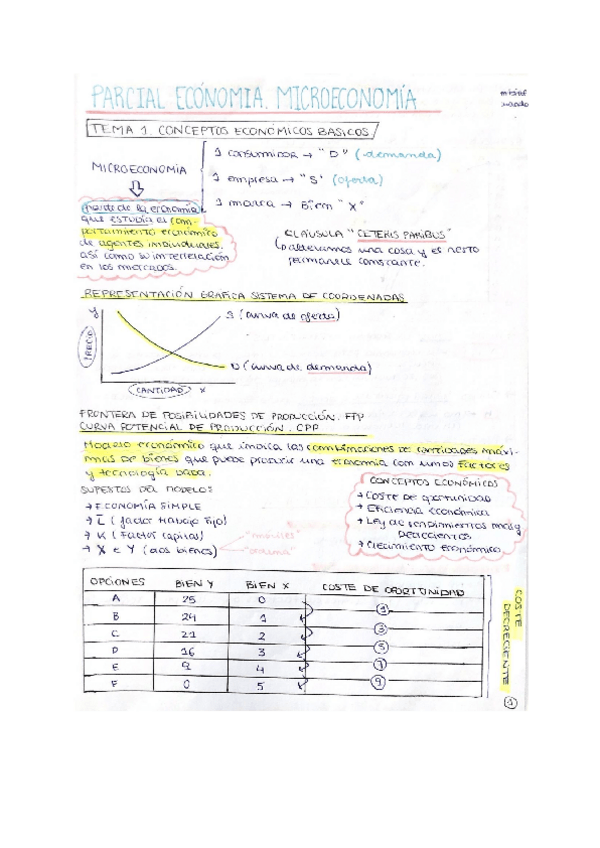 PARCIAL ECÓNOMIA. MICROECONOMÍA
TEMA 1. CONCEPTOS ECONÓMICOS BASICOS
1 consumidor → "D" (demanda)
MICROECONOMIA
1 empresa → "S" (oferta)
1 marca → Bien "X"
parte de la economía
que estudia el com-
portamiento económico
de agentes individuales,
así como su interrelación
en los mercados.
CLÁUSULA "CETERIS PARIBUS"
alteramos una cosa y el resto
permanece constante.
REPRESENTACIÓN GRAFICA SISTEMA DE COORDENADAS
y
PRECIO
S (curva de oferta)
D (curva de demanda)
CANTIDAD x
FRONTERA DE POSIBILIDADES DE PRODUCCIÓN. FPP
CURVA POTENCIAL DE PRODUCCIÓN. CPP
Modelo económico que indica las combinaciones de cantidades máxi-
mas de bienes que puede producir una economía con unos factores
y tecnología dada.
SUPESTOS DEL MODELO:
→ ECONOMÍA SIMPLE
→ L̅ (factor trabajo fijo)
→ K (factor capital)
→ X e Y (dos bienes)
CONCEPTOS ECONÓMICOS
→ Coste de oportunidad
→ Eficiencia económica
→ Ley de rendimientos mrg
Decrecientes
→ Crecimiento económico
OPCIONES BIEN Y BIEN X COSTE DE OPORTUNIDAD
A 25 0
1
B 24 1
3
C 21 2
5
D 16 3
7
E 9 4
9
F 0 5
COSTE
DECRECIENTE
1